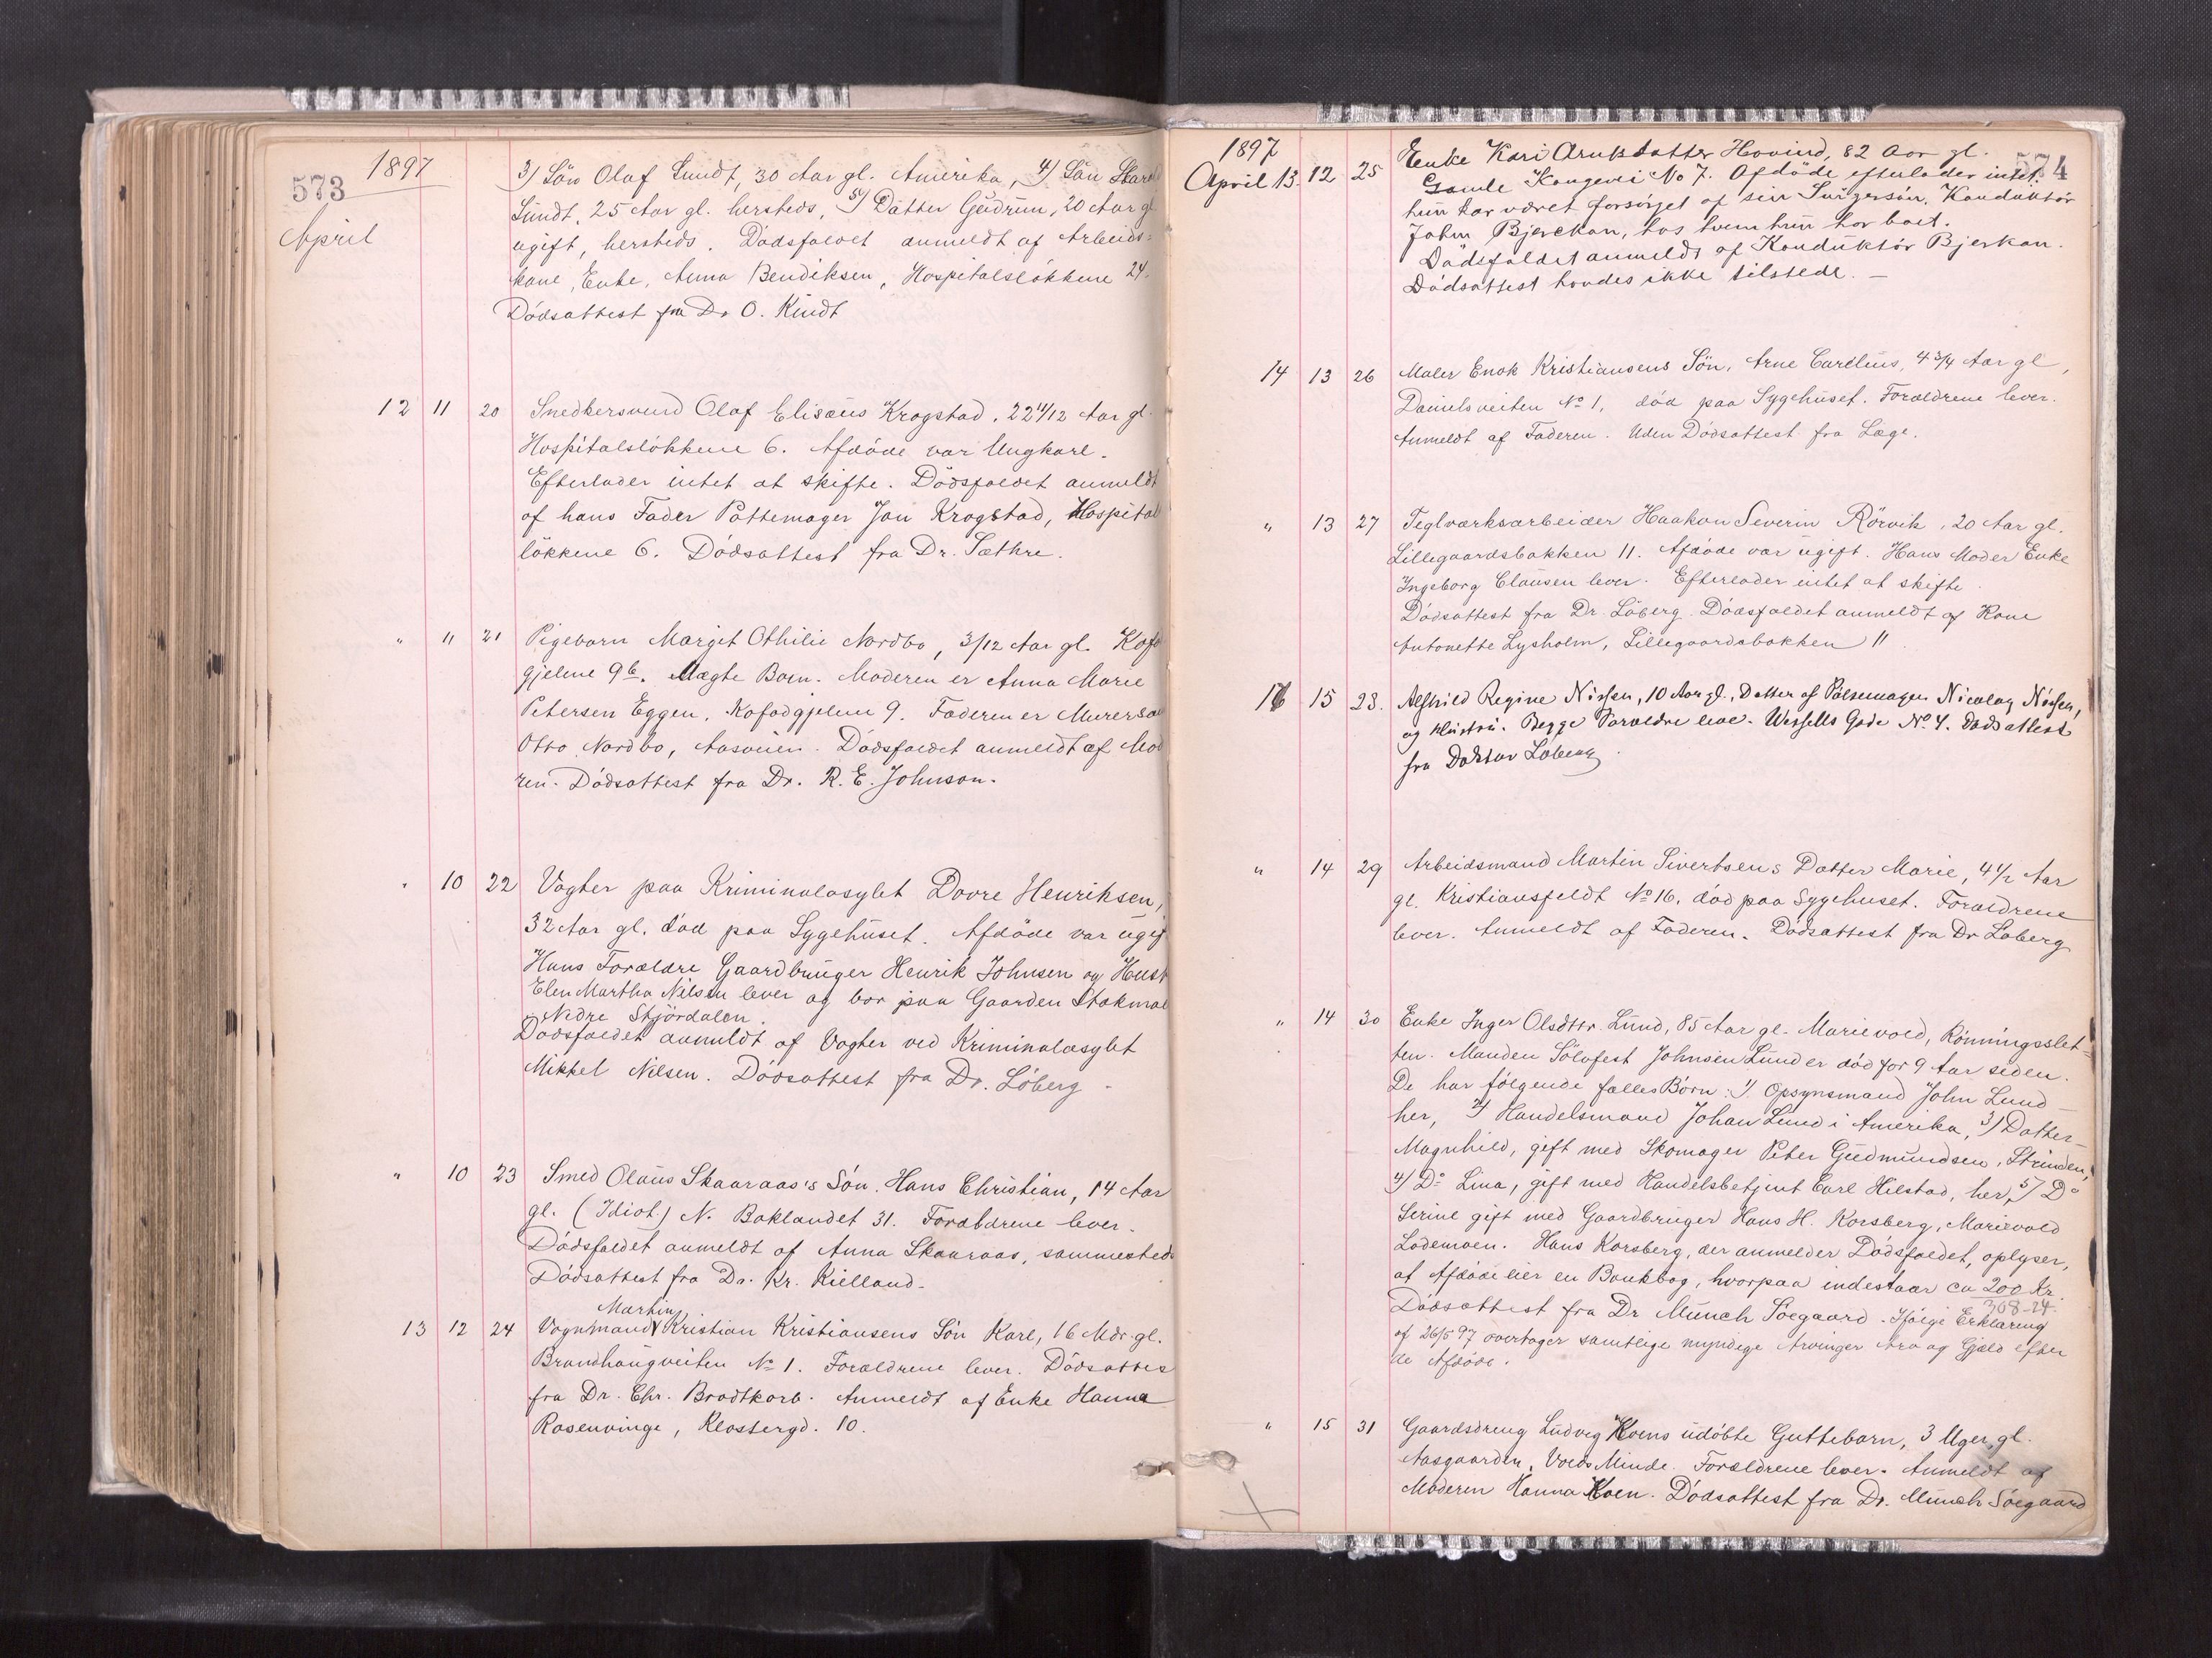 573
1897
April
3) Sön Olaf Sundt, 30 Aar gl. Amerika, 4) Sön Skar
Sundt, 25 Aar gl. hersteds, 5) Datter Gudrun, 20 Aar gl
ugift, hersteds. Dödsfaldet anmeldt af Arbeids=
kone, Enke, Anna Bendiksen, Hospitalslökkene 24.
Dödsattest fra Dr O. Kindt
12 11 20 Snedkersvend Olaf Elisæus Krogstad, 22 4/12 Aar gl.
Hospitalslökkene 6. Afdöde var Ungkarl.
Efterlader intet at skifte. Dödsfaldet anmeldt
af hans Fader Pottemager Jon Krogstad, Hospital
lökkene 6. Dödsattest fra Dr. Sæthre.
" 11 21 Pigebarn Margit Othilie Nordbo, 3/12 Aar gl. Kofo
gjelene 9b. Uægte Barn. Moderen er Anna Marie
Petersen Eggen, Kofodgjelene 9. Faderen er Murersv
Otto Nordbo, Aasveien. Dödsfaldet anmeldt af Mod
ren. Dödsattest fra Dr. R. E. Johnson.
" 10 22 Vogter paa Kriminalasylet Dovre Henriksen,
32 Aar gl. död paa Sygehuset. Afdöde var ugif
Hans Forældre Gaardbruger Henrik Johnsen og Hust
Elen Martha Nilsen lever og bor paa Gaarden Stokmo
i Nedre Stjördalen.
Dödsfaldet anmeldt af Vogter ved Kriminalasylet
Mikkel Nilsen. Dödsattest fra Dr. Löberg.
" 10 23 Smed Olaus Skaaraas's Sön. Hans Christian, 14 Aar
gl. (Idiot) N. Baklandet 31. Forældrene lever.
Dödsfaldet anmeldt af Anna Skaaraas, sammesteds
Dödsattest fra Dr. Kr. Kielland.
Martin
13 12 24 Vognmand Kristian Kristiansens Sön Karl, 16 Mdr. gl.
Brandhaugveiten No 1. Forældrene lever. Dödsattes
fra Dr. Chr. Brodtkorb. Anmeldt af Enke Hanna
Rosenvinge, Klostergd. 10.
574
1897
April 13. 12 25 Enke Kari Arntsdatter Hovind, 82 Aar gl.
Gamle Kongevei No 7. Afdöde efterlader intet.
hun har været forsörget af sin Svigersön, Konduktör
John Bjerekan, hos hvem hun har boet.
Dödsfaldet anmeldt af Konduktör Bjerkan.
Dödsattest havdes ikke tilstede. —
14 13 26 Maler Enok Kristiansens Sön, Arne Cardlius, 4 3/4 Aar gl,
Danielsveiten No 1, död paa Sygehuset. Forældrene lever.
Anmeldt af Faderen. Uden Dödsattest fra Læge.
" 13 27 Teglværksarbeider Haakon Severin Rörvik, 20 Aar gl.
Lillegaardsbakken 11. Afdöde var ugift. Hans Moder Enke
Ingeborg Clausen lever. Efterlader intet at skifte.
Dödsattest fra Dr. Löberg. Dödsfaldet anmeldt af Kone
Antonette Lysholm, Lillegaardsbakken 11.
16 15 28. Alfhild Regine Nissen, 10 Aar gl., Datter af Pölsemager Nicolay Nissen,
og Hustru. Begge Foreldre leve. Wessells Gade No. 4. Dödsattest
fra Doktor Löberg.
" 14 29 Arbeidsmand Martin Sivertsens Datter Marie, 4 1/2 Aar
gl. Kristiansfeldt No 16, död paa Sygehuset. Forældrene
lever. Anmeldt af Faderen. Dödsattest fra Dr Löberg
" 14 30 Enke Inger Olsdttr. Lund, 85 Aar gl. Marievold, Rönningsslet=
ten. Manden Sölvfest Johnsen Lund er död for 9 Aar siden.
De har fölgende fælles Börn: 1) Opsynsmand John Lund
her, 2) Handelsmand Johan Lund i Amerika, 3) Datter
Magnhild, gift med Skomager Peter Gudmundsen, Strinden,
4) Do Lina, gift med Handelsbetjent Carl Hilstad, her, 5) Do
Serine gift med Gaardbruger Hans H. Korsberg, Marievold
Lademoen. Hans Korsberg, der anmelder Dödsfaldet, oplyser,
at Afdöde eier en Bankbog, hvorpaa indestaar ca 200 Kr.
308-24.
Dödsattest fra Dr Münch Söegaard. Ifölge Erklæring
af 26/5 97 overtager samtlige myndige Arvinger Arv og Gjæld efter
de Afdöde.
" 15 31 Gaardsdreng Ludvig Hoens udöbte Guttebarn, 3 Uger gl.
Aasgaarden, Volds Minde. Forældrene lever. Anmeldt af
Moderen Hanna Hoen. Dödsattest fra Dr. Münch Söegaard